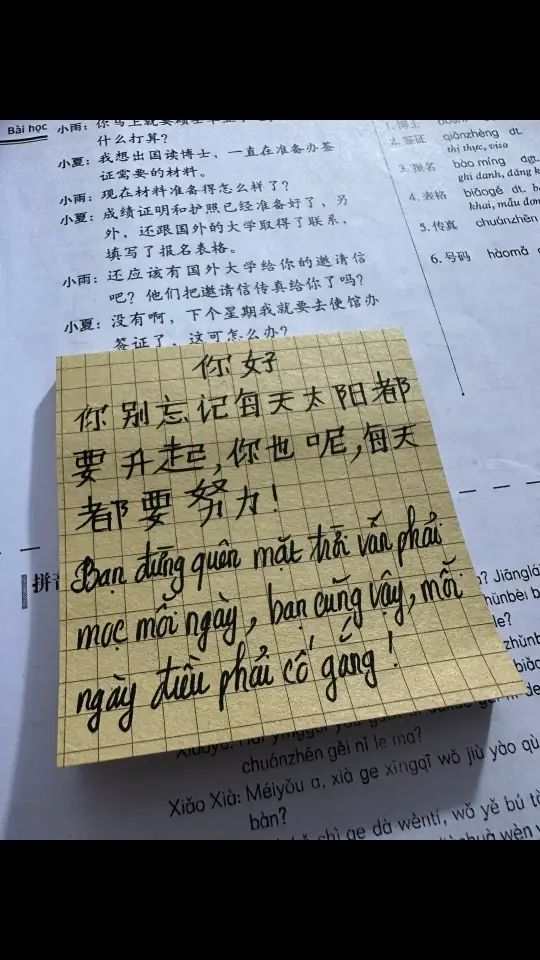 Bài học
小雨：你马上就要硕士毕业了
什么打算？
小夏：我想出国读博士，一直在准备办签
证需要的材料。
小雨：现在材料准备得怎么样了？
小夏：成绩证明和护照已经准备好了，另
外，还跟国外的大学取得了联系，
填写了报名表格。
小雨：还应该有国外大学给你的邀请信
吧？他们把邀请信传真给你了吗？
小夏：没有啊，下个星期我就要去使馆办
签证了，这可怎么办？
1. 博士
2. 签证 qiānzhèng dt.
thị thực, visa
3. 报名 bào míng đgt.
ghi danh, đăng k
4. 表格 biǎogé dt. b
khai, mẫu đơn
5. 传真 chuánzhēn
6. 号码 hàomǎ
你好
你别忘记每天太阳都
要升起,你也呢,每天
都要努力!
Bạn đừng quên mặt trời vẫn phải
mọc mỗi ngày, bạn cũng vậy, mỗi
ngày điều phải cố gắng!
拼音
? Jiānglái
zhǔnbèi b
le?
zhǔnb
biǎo
de
chuánzhēn gěi nǐ le ma?
Xiǎo Xià: Méiyǒu a, xià ge xīngqī wǒ jiù yào qù
bàn?
shì ge dà wèntí, wǒ yě bú